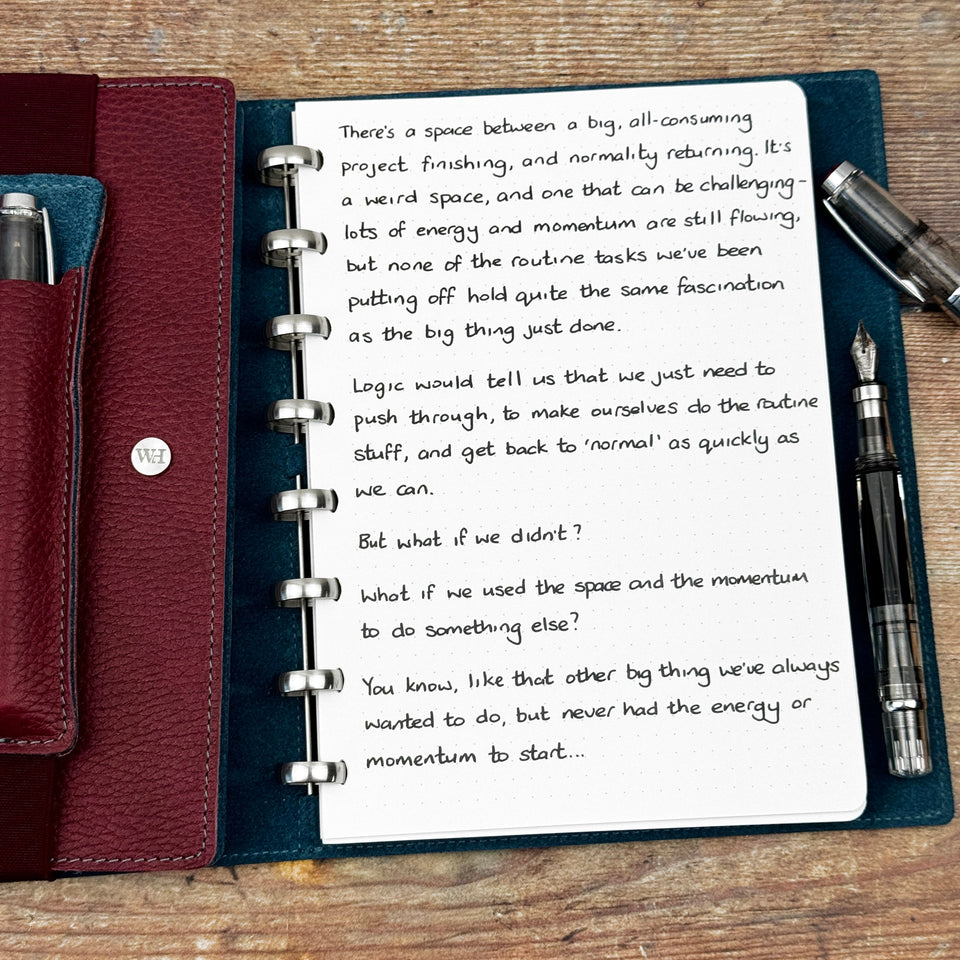 There's a space between a big, all-consuming
project finishing, and normality returning. It's
a weird space, and one that can be challenging-
lots of energy and momentum are still flowing,
but none of the routine tasks we've been
putting off hold quite the same fascination
as the big thing just done.
Logic would tell us that we just need to
push through, to make ourselves do the routine
stuff, and get back to 'normal' as quickly as
we can.
But what if we didn't?
What if we used the space and the momentum
to do something else?
You know, like that other big thing we've always
wanted to do, but never had the energy or
momentum to start...
WH